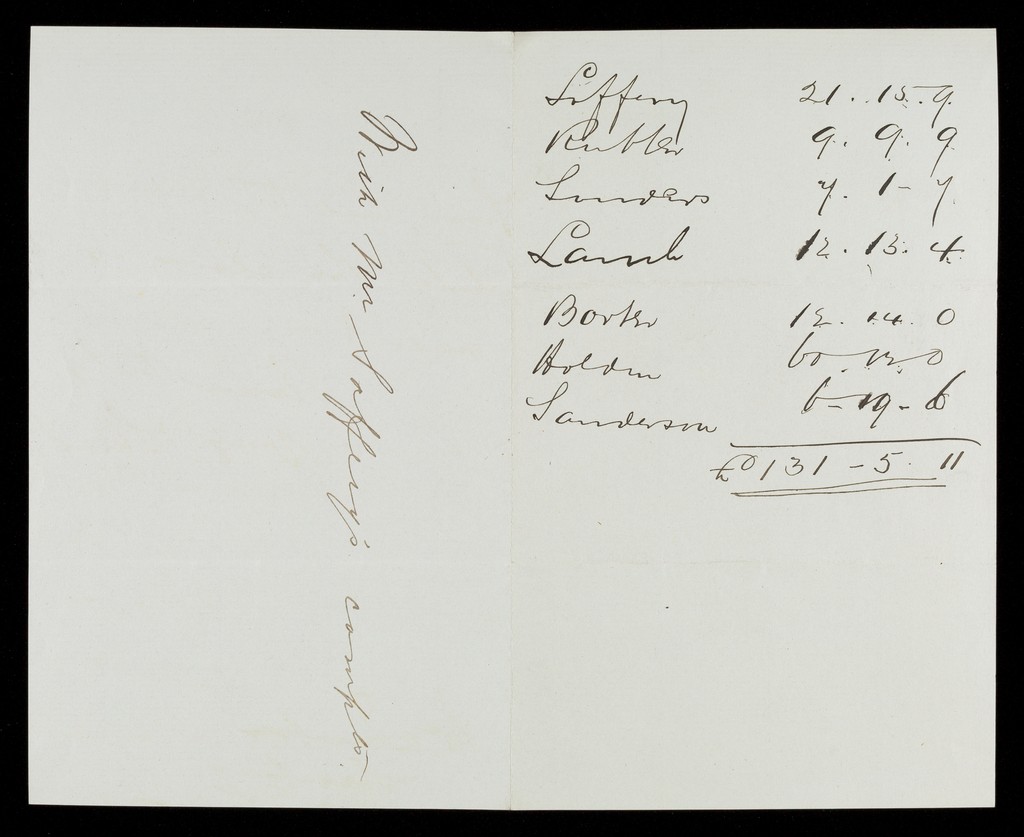 With Mr Saffery's compts.
Saffery 21. 15. 9
Rutter 9. 9. 9
Sunders 7. 1 - 7
Lamb 12. 13. 4
Borter 12. 14. 0
Holden 60. 12. 0
Sanderson 6 - 19 - 6
£131 - 5. 11